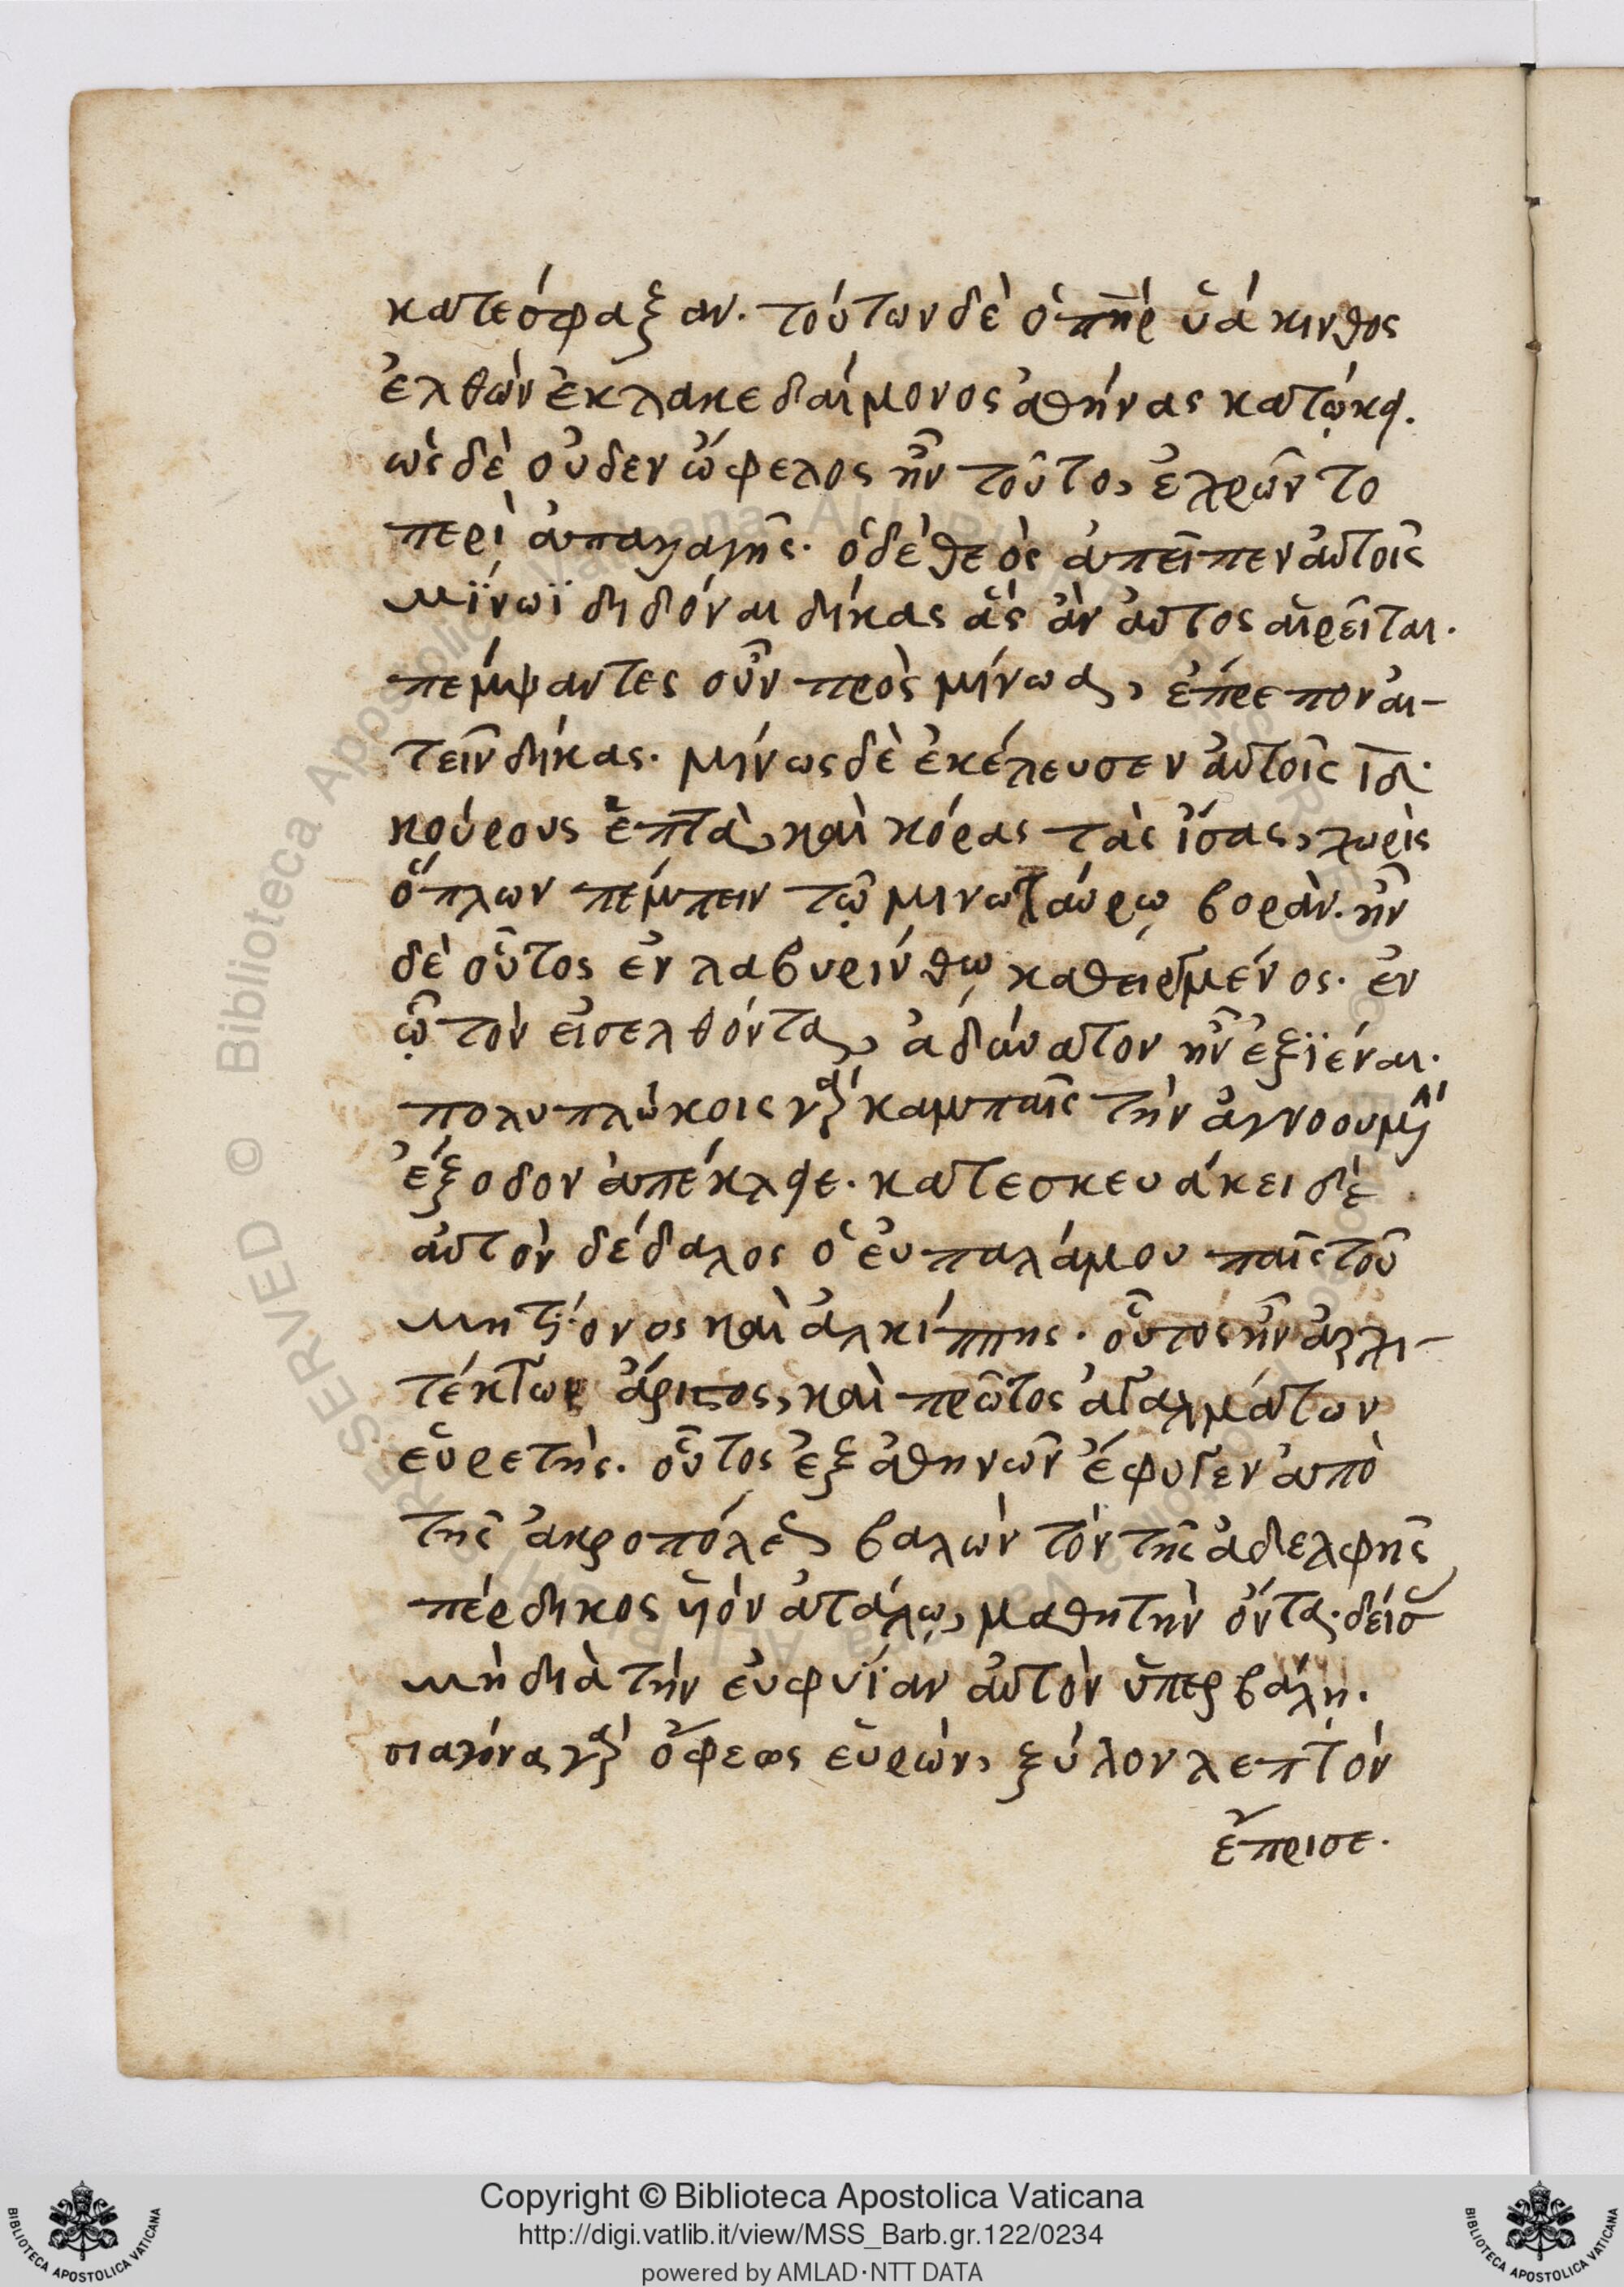 κατέσφαξαν. τούτων δὲ ὁ πηρ ὑάκινθος
ἐλθὼν ἐκ λακεδαίμονος ἀθήνας κατῴκει.
ὡς δὲ οὐδεν ὤφελος ἦν τοῦτο, ἐχρῶντο
περὶ ἀπαλαγῆς. ὁ δὲ θεὸς ἀπεῖπεν αὐτοῖς
μίνωϊ διδόναι δίκας ἃς ἂν αὐτος αἱρεῖται.
πέμψαντες οὖν πρὸς μίνωα, ἐπέτρεπον αἰ-
τεῖν δίκας. μίνως δὲ ἐκέλευσεν αὐτοῖς ιδ.
κούρους ἑπτὰ, καὶ κόρας τὰς ἴσας, χωρὶς
ὅπλων πέμπειν τῷ μινωταύρῳ βορὰν. ἦν
δὲ οὗτος ἐν λαβυρίνθῳ καθειργμένος. ἐν
ᾧ τὸν εἰσελθόντα, ἀδύνατον ἦν ἐξϊέναι.
πολυπλόκοις γὰρ καμπαῖς τὴν ἀγνοουμένην
ἔξοδον ἀπέκλειε. κατεσκευάκει δὲ
αὐτὸν δέδαλος ὁ εὐπαλάμου παῖς τοῦ
μητίονος καὶ ἀλκίππης. οὗτος ἦν ἀρχι-
τέκτων ἄριστος, καὶ πρῶτος ἀγαλμάτων
εὑρετὴς. οὗτος ἐξ ἀθηνῶν ἔφυγεν ἀπὸ
τῆς ἀκροπόλεως βαλὼν τὸν τῆς ἀδελφῆς
πέρδικος υἱὸν ἀτάλῳ, μαθητὴν ὄντα. δείσας
μὴ διὰ τὴν εὐφυΐαν αὐτὸν ὑπερβάλῃ.
σιαγόνα γὰρ ὄφεως εὑρὼν, ξύλον λεπτὸν
ἔπρισε.
Copyright © Biblioteca Apostolica Vaticana
http://digi.vatlib.it/view/MSS_Barb.gr.122/0234
powered by AMLAD·NTT DATA
BIBLIOTECA APOSTOLICA VATICANA
BIBLIOTECA APOSTOLICA VATICANA